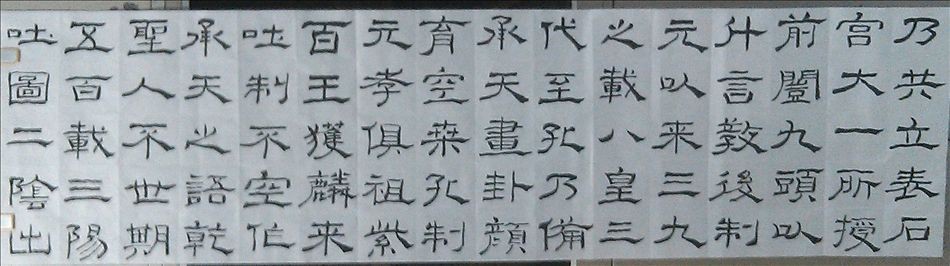 乃共立表石
宫大一所授
前闓九頭以
什言敎後制
元以来三九
之載八皇三
代至孔乃備
承天畫卦顔
育空桒孔制
元孝俱祖紫
百王獲麟来
吐制不空作
承天之語乾
聖人不世期
五百載三陽
吐圖二陰出